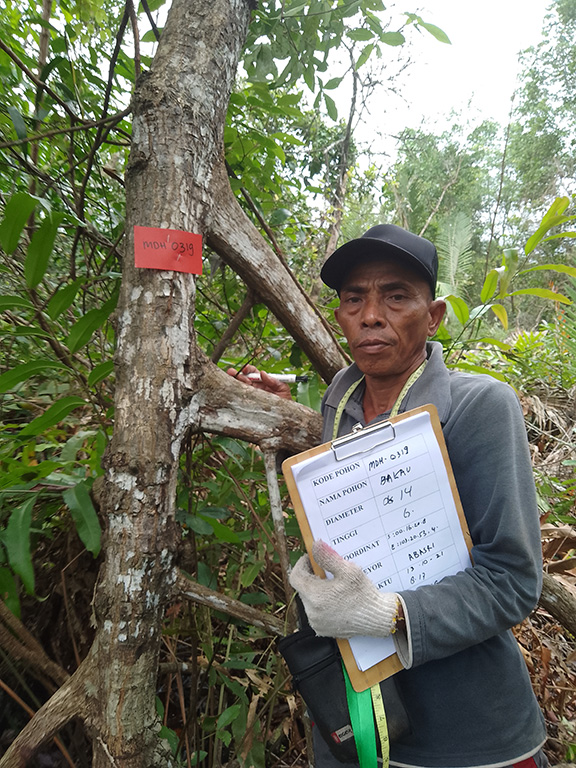 MDH 0319
KODE POHON MDH-0319
NAMA POHON BAKAU
DIAMETER 14
TINGGI 6.
OORDINAT
EYOR ABASRI
KTU 13-10-21
8.17